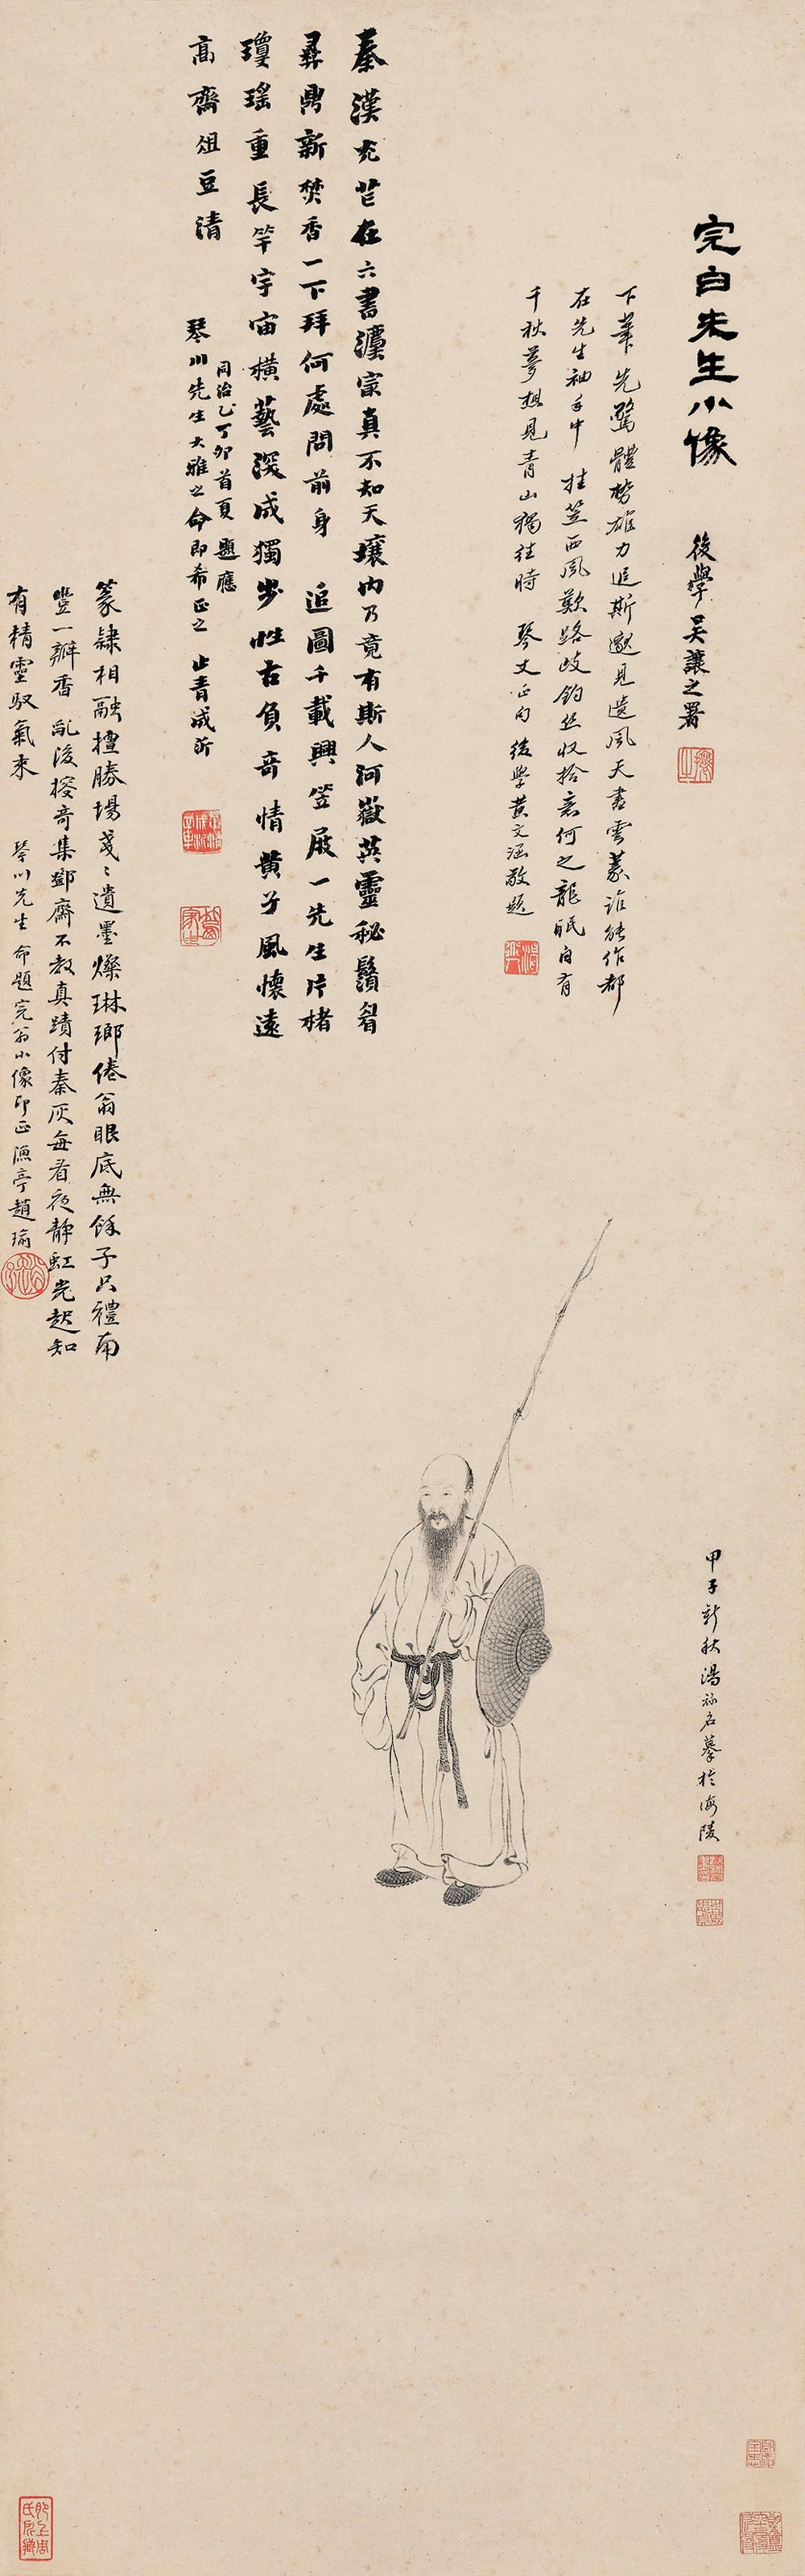 完白先生小像
後學吳讓之署
下筆先驚體勢雄力追斯邈見遺風天書雲篆誰能作都
在先生袖手中 挂笠西風歎路歧釣絲收拾意何之龍眠自有
千秋夢想見青山獨往時 琴丈正句 後學黃文涵敬題
秦漢光芒在六書灋宗真不知天壤內乃竟有斯人河嶽英靈秘鬚眉
彝鼎新焚香一下拜何處問前身 追圖千載興笠屐一先生片楮
瓊瑤重長竿宇宙橫藝深成獨步性古負奇情黃子風懷遠
高齋俎豆清
同治丁卯首夏題應
琴川先生大雅之命即希正之 止青成沂
篆隸相融擅勝場戔〻遺墨燦琳瑯倦翁眼底無餘子只禮南
豐一瓣香 亂後搜奇集鄧齋不教真蹟付秦灰每看夜靜虹光起知
有精靈馭氣來 琴川先生命題完翁小像即正 漁亭趙瑜
甲子新秋湯祿名摹於海陵